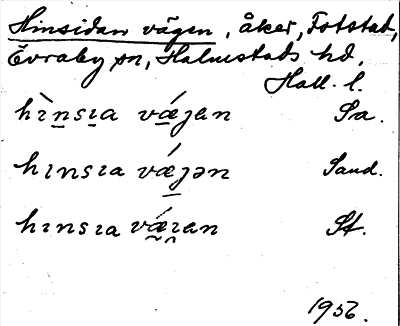 Hinsidan vägen, åker, Fotstad,
Övraby sn, Halmstads hd,
Hall. l.
hı̀n̲sı̲a vǽ̲ȷan Sa.
hınsıa vǽ̲ȷən Sand.
hınsıa vǽ̰ı̯an St.
1956.